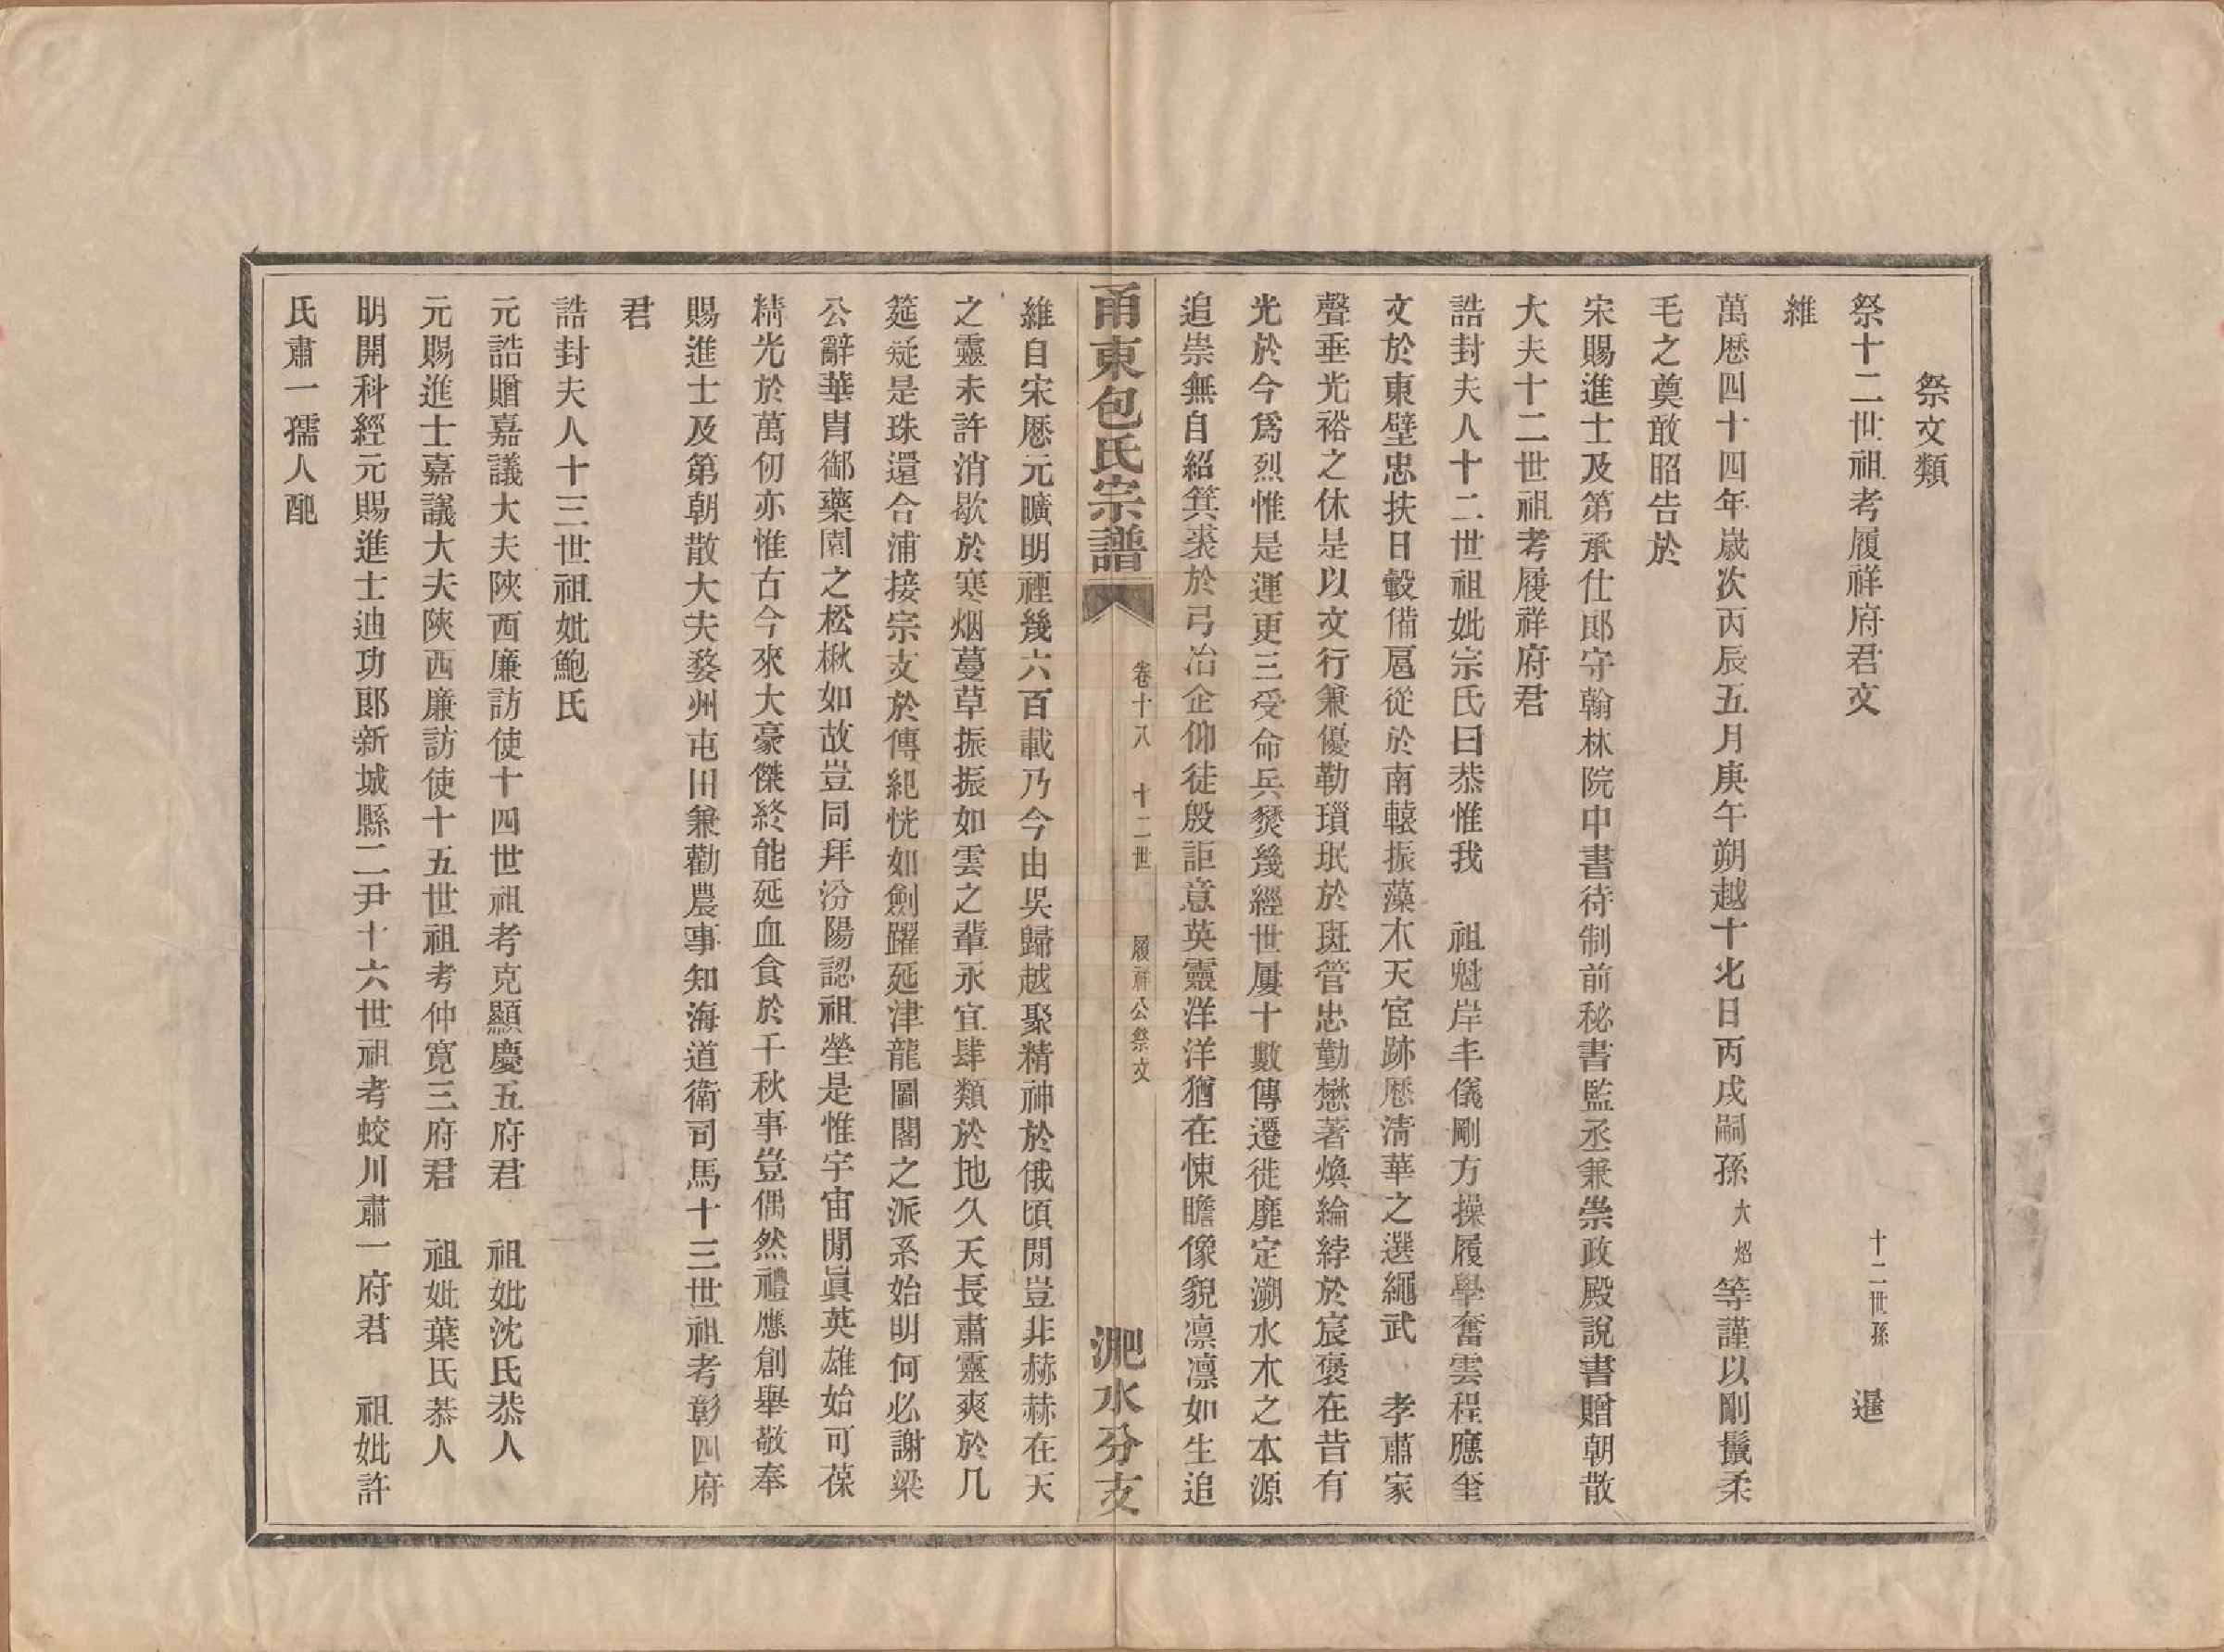 祭文類
祭十二世祖考履祥府君文　十二世孫　暹
維
萬厯四十四年歲次丙辰五月庚午朔越十七日丙戌嗣孫大炤等謹以剛鬛柔
毛之奠敢昭告於
宋賜進士及第承仕郎守翰林院中書待制前秘書監丞兼崇政殿說書贈朝散
大夫十二世祖考履祥府君
誥封夫人十二世祖妣宗氏曰恭惟我　祖魁岸丰儀剛方操履學奮雲程應奎
文於東壁忠扶日轂備扈從於南轅振藻木天宦跡厯淸華之選繩武　孝肅家
聲垂光裕之休是以文行兼優勒瑣珉於斑管忠勤懋著煥綸綍於宸褒在昔有
光於今爲烈惟是運更三受命兵燹幾經世屢十數傳遷徙靡定溯水木之本源
追崇無自紹箕裘於弓冶企仰徒殷詎意英靈洋洋猶在悚瞻像貌凛凛如生追
甬東包氏宗譜　卷十八　十二世　履祥公祭文　淝水分支
維自宋厯元曠明禋幾六百載乃今由吳歸越聚精神於俄頃閒豈非赫赫在天
之靈未許消歇於寒烟蔓草振振如雲之輩永宜肆類於地久天長肅靈爽於几
筵疑是珠還合浦接宗支於傳絕恍如劍躍延津龍圖閣之派系始明何必謝梁
公辭華胄鄉藥園之松楸如故豈同拜汾陽認祖塋是惟宇宙閒眞英雄始可葆
精光於萬仞亦惟古今來大豪傑終能延血食於千秋事豈偶然禮應創舉敬奉
賜進士及第朝散大夫婺州屯田兼勸農事知海道衛司馬十三世祖考彰四府
君
誥封夫人十三世祖妣鮑氏
元誥贈嘉議大夫陝西廉訪使十四世祖考克顯慶五府君　祖妣沈氏恭人
元賜進士嘉議大夫陝西廉訪使十五世祖考仲寬三府君　祖妣葉氏恭人
明開科經元賜進士迪功郎新城縣二尹十六世祖考蛟川肅一府君　祖妣許
氏肅一孺人配